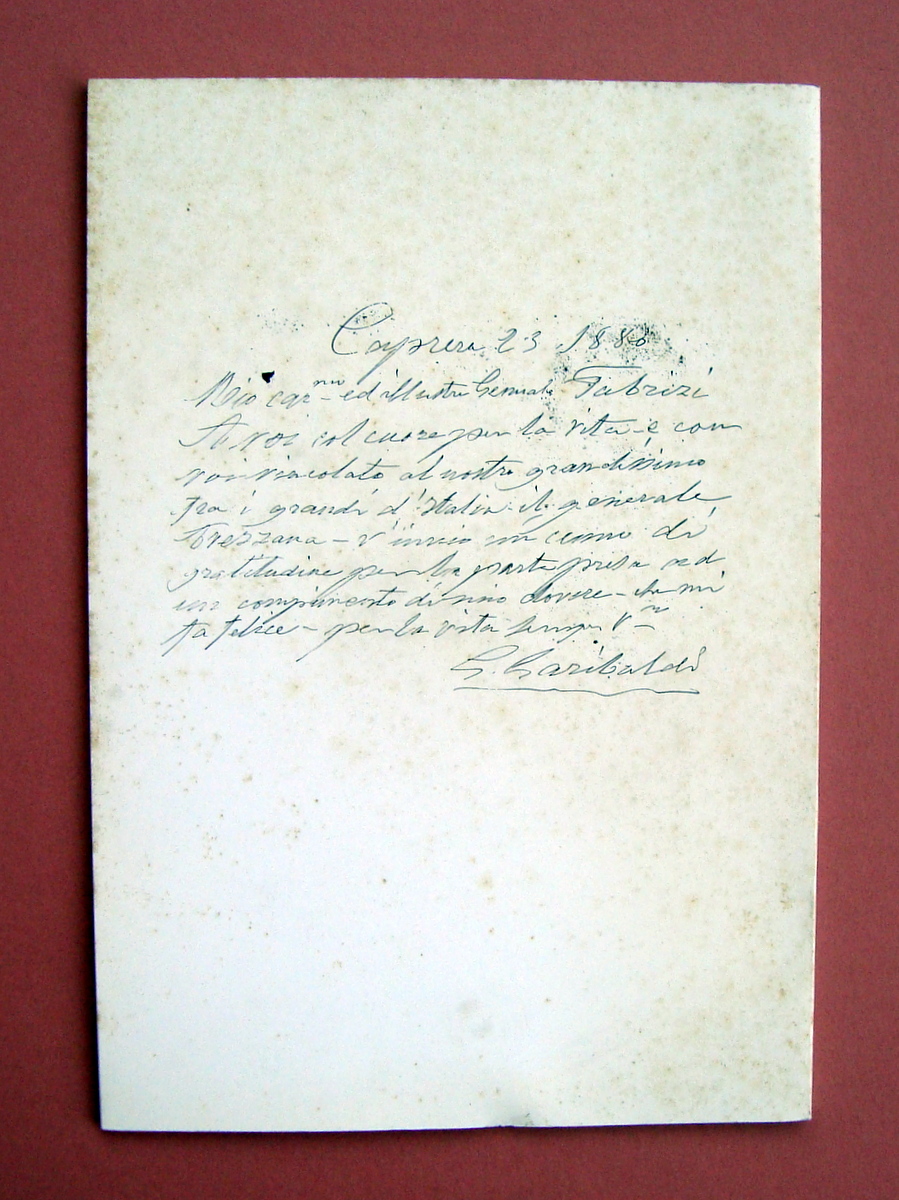 Caprera 23 1880
Mio car.mo ed illustre Generale Fabrizi
A voi col cuore per la vita e con
voi vincolato al nostro grandissimo
fra i grandi d'Italia il generale
Avezzana – v'invio un cenno di
gratitudine per la parte presa ad
un compimento di mio dovere – che mi
fa felice – per la vita sempre V.ro
G. Garibaldi